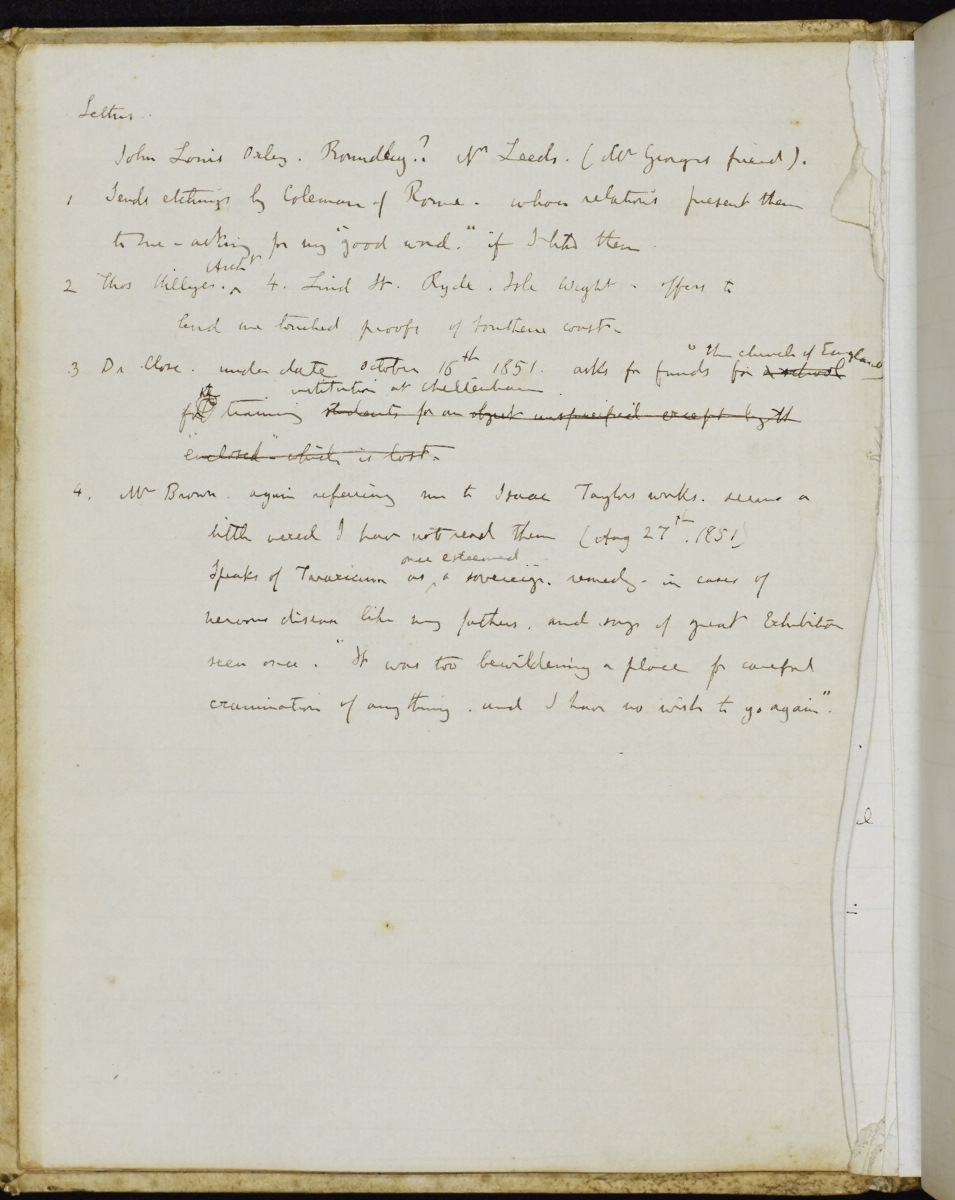 Letters.
John Louis Oxley. Roundhay? Nr Leeds. (Mr Georges friend).
1 Sends etchings by Coleman of Rome - whose relations present them
to me - asking for my "good word." if I like them
Archt
2 Thos Hillyer. ^ 4. Lind St. Ryde. Isle Wight - offers to
lend me touched proofs of Southern coast -
" the church of England
3 Dr Close. under date October 16th 1851. asks for funds for a school
institution at Cheltenham
for training students for an object unspecified except by th
"enclosed" which is lost -
4. Mr Brown. again referring me to Isaac Taylors works. seems a
little vexed I have not read them (Aug 27th. 1851)
once esteemed
Speaks of Taraxicum as ^ a sovereign remedy - in cases of
nervous disease like my fathers. and says of great Exhibition
seen once. "It was too bewildering a place for careful
examination of anything. and I have no wish to go again".